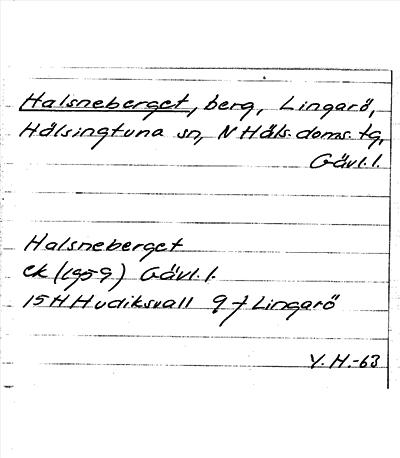 Halsneberget, berg, Lingarö,
Hälsingtuna sn, N Häls. doms. tg,
Gävl. l.
Halsneberget
ek (1959) Gävl. l.
15H Hudiksvall 9 f Lingarö
Y. H.-63